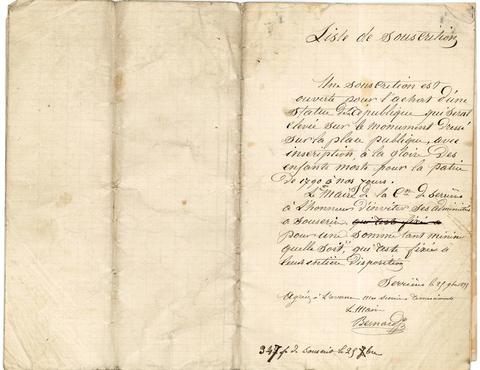 Liste de souscrition
Un souscrition est
ouverte pour l'achat d'une
statue de République qui serai
élevée sur le monument dressé
sur la place publique, avec
inscription, à la gloire des
enfants morts pour la patrie
de 1790 à nos jours.
Le Maire de la Cne de Serriès
à l'honneur d'inviter ses administrés
a souscrir qui est fixé a
pour une somme tant minim
quelle soit, qui est fixée à
leur entière disposition
Serriès le 25
Agréez à l'avance mes
Le Maire
Bernard
347 f de souscrit le 25 bre